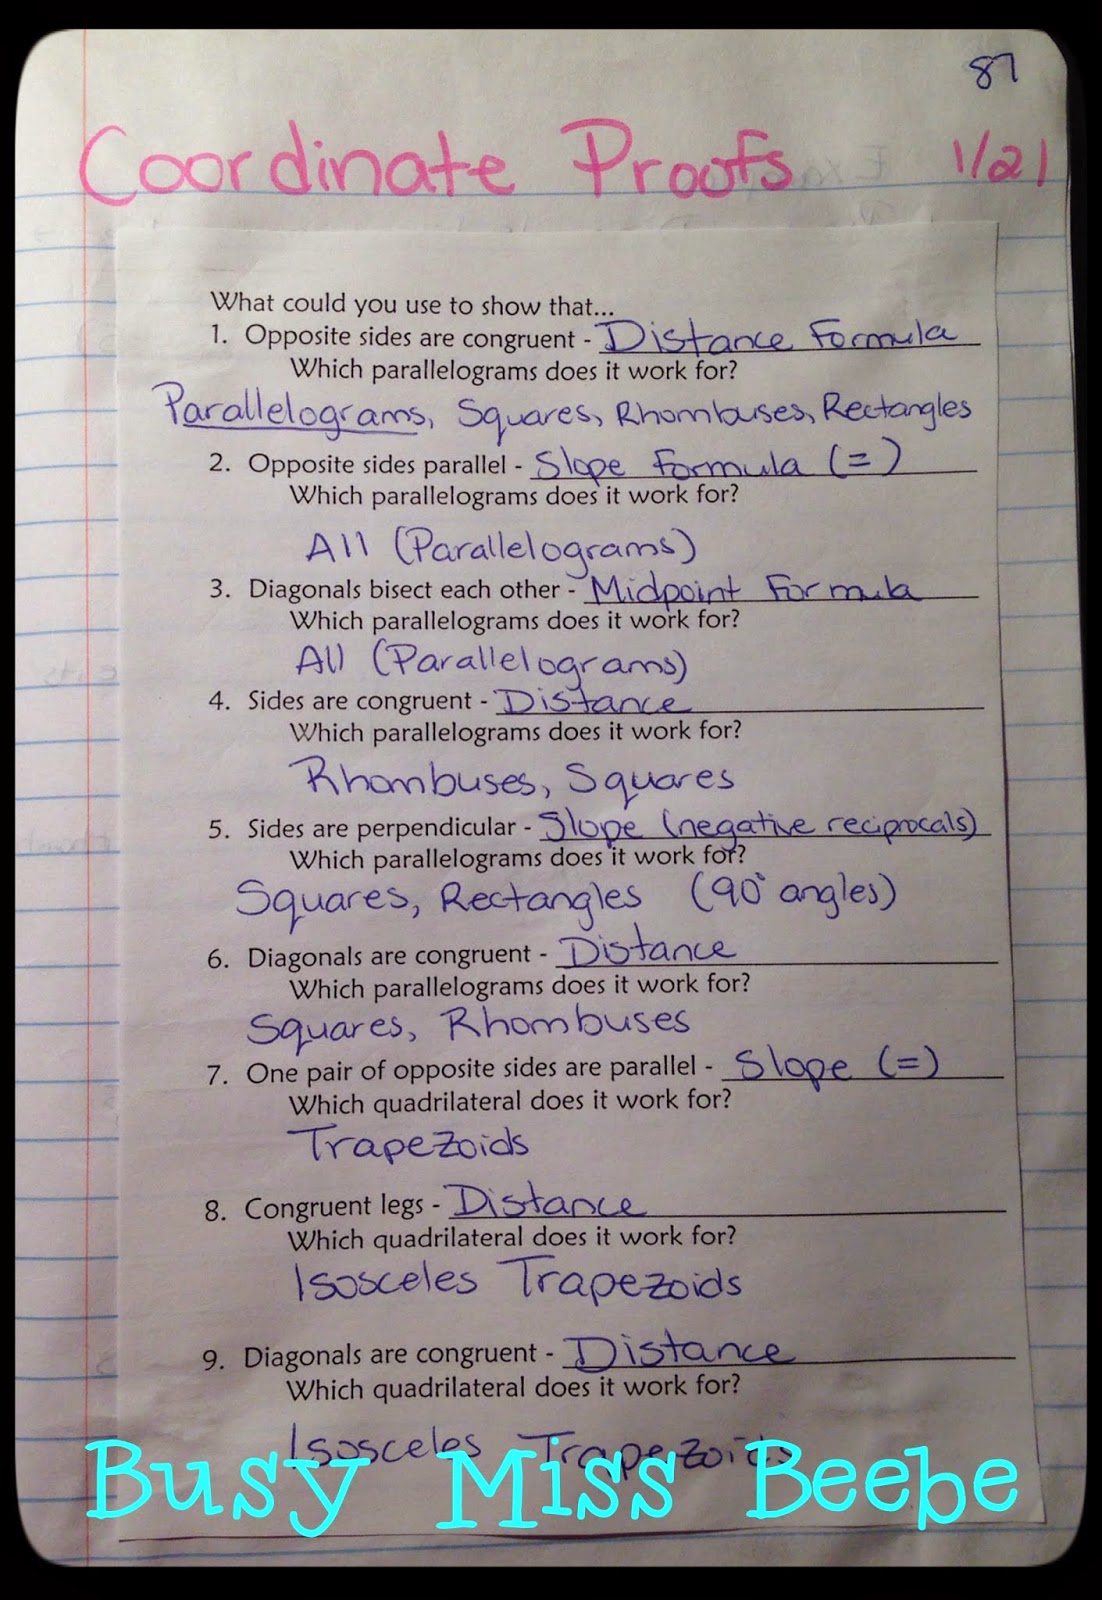 87
Coordinate Proofs 1/21
What could you use to show that...
1. Opposite sides are congruent - Distance Formula
Which parallelograms does it work for?
Parallelograms, Squares, Rhombuses, Rectangles
2. Opposite sides parallel - Slope Formula (=)
Which parallelograms does it work for?
All (Parallelograms)
3. Diagonals bisect each other - Midpoint Formula
Which parallelograms does it work for?
All (Parallelograms)
4. Sides are congruent - Distance
Which parallelograms does it work for?
Rhombuses, Squares
5. Sides are perpendicular - Slope (negative reciprocals)
Which parallelograms does it work for?
Squares, Rectangles (90° angles)
6. Diagonals are congruent - Distance
Which parallelograms does it work for?
Squares, Rhombuses
7. One pair of opposite sides are parallel - Slope (=)
Which quadrilateral does it work for?
Trapezoids
8. Congruent legs - Distance
Which quadrilateral does it work for?
Isosceles Trapezoids
9. Diagonals are congruent - Distance
Which quadrilateral does it work for?
Isosceles Trapezoids
Busy Miss Beebe